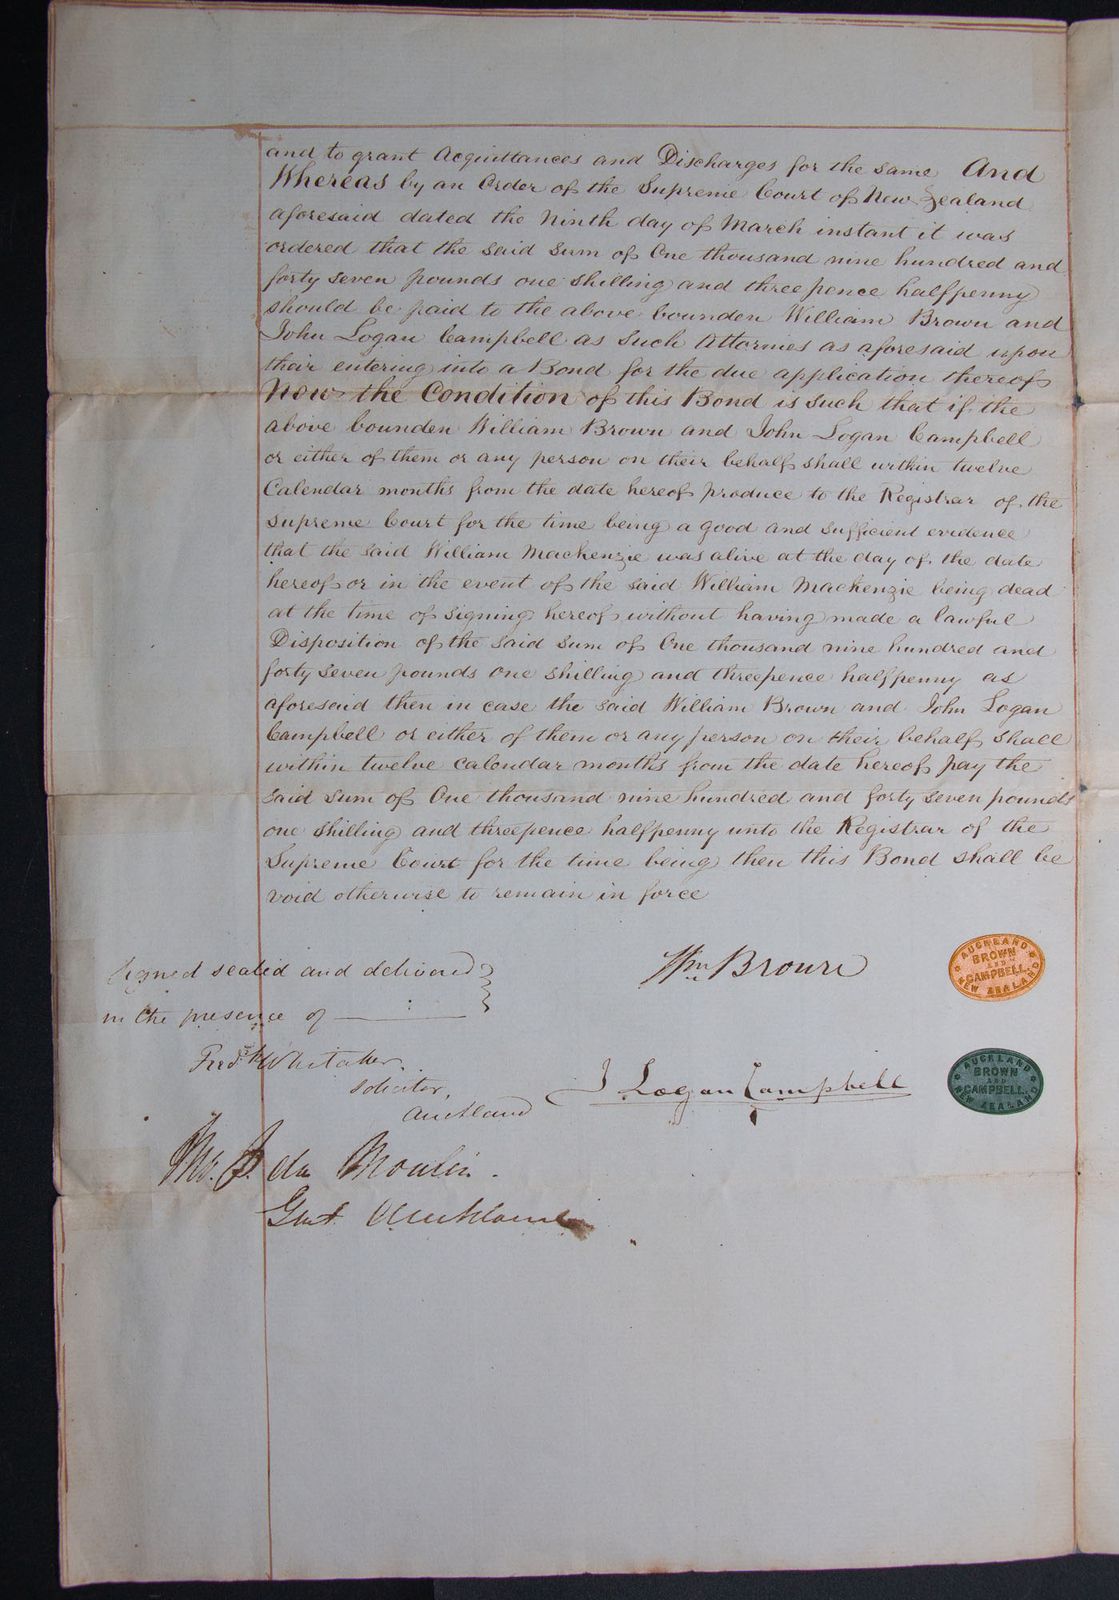 and to grant Acquittances and Discharges for the same And
Whereas by an Order of the Supreme Court of New Zealand
aforesaid dated the Ninth day of March instant it was
ordered that the said sum of One thousand nine hundred and
forty seven pounds one shilling and threepence halfpenny
should be paid to the above bounden William Brown and
John Logan Campbell as such Attornies as aforesaid upon
their entering into a Bond for the due application thereof
Now the Condition of this Bond is such that if the
above bounden William Brown and John Logan Campbell
or either of them or any person on their behalf shall within twelve
Calendar months from the date hereof produce to the Registrar of the
Supreme Court for the time being a good and sufficient evidence
that the said William Mackenzie was alive at the day of the date
hereof or in the event of the said William Mackenzie being dead
at the time of signing hereof without having made a lawful
Disposition of the said sum of One thousand nine hundred and
forty seven pounds one shilling and threepence halfpenny as
aforesaid then in case the said William Brown and John Logan
Campbell or either of them or any person on their behalf shall
within twelve calendar months from the date hereof pay the
said sum of One thousand nine hundred and forty seven pounds
one shilling and threepence halfpenny unto the Registrar of the
Supreme Court for the time being then this Bond shall be
void otherwise to remain in force
Signed sealed and delivered
in the presence of
Wm Brown
AUCKLAND
BROWN
AND
CAMPBELL.
NEW ZEALAND
Fredk Whitaker
Solicitor,
Auckland
J Logan Campbell
AUCKLAND
BROWN
AND
CAMPBELL.
NEW ZEALAND
J. du Moulin.
Auckland